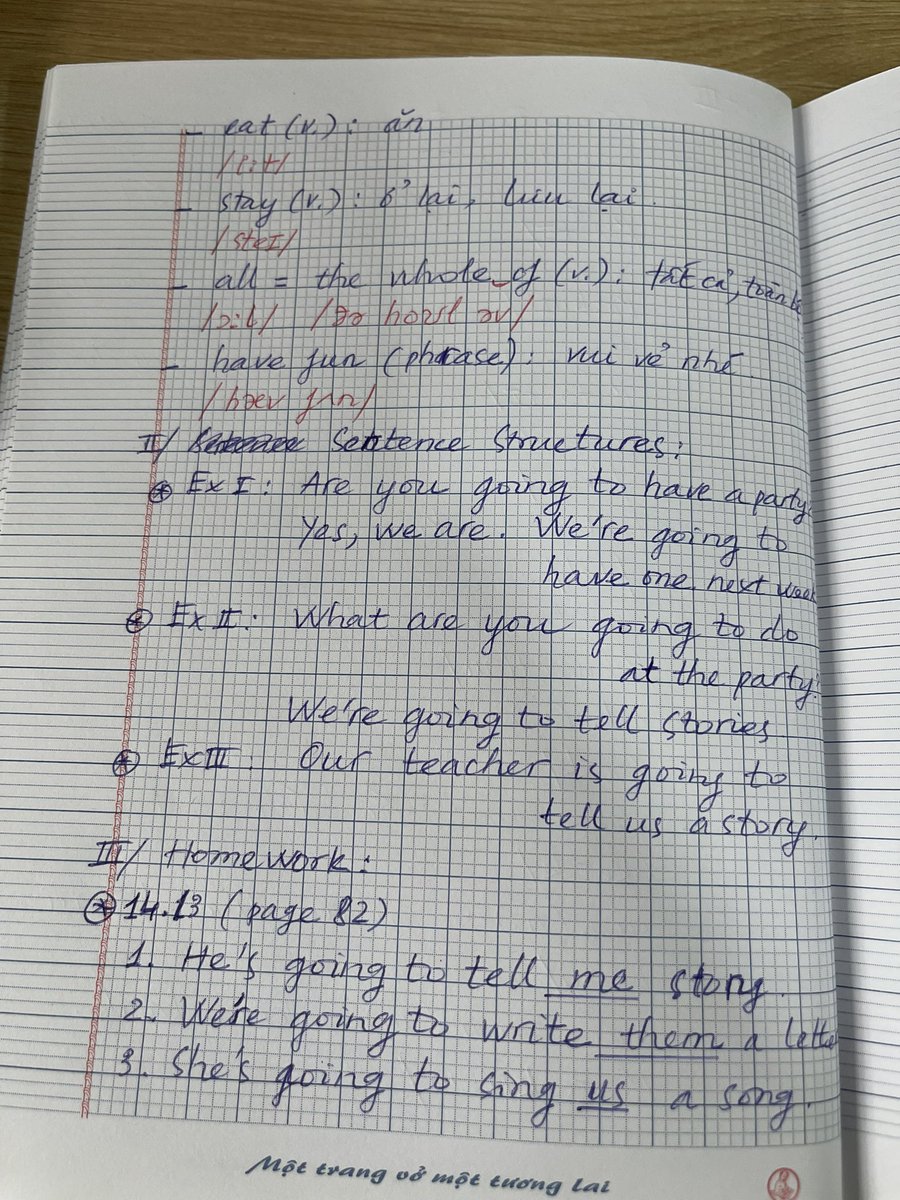 - eat (v.) : ăn
/i:t/
- stay (v.) : ở lại, lưu lại.
/steɪ/
- all = the whole of (v.) : tất cả, toàn bộ
/ɔ:l/ /ðə həʊl əv/
- have fun (phrase) : vui vẻ nhé
/hæv fʌn/
II/ Sentence Structures:
* Ex I : Are you going to have a party?
Yes, we are. We're going to
have one next week
* Ex II : What are you going to do
at the party?
We're going to tell stories
* Ex III. Our teacher is going to
tell us a story.
III/ Homework:
* 14.13 (page 82)
1. He's going to tell me story.
2. We're going to write them a lette
3. She's going to sing us a song.
Một trang vở một tương lai